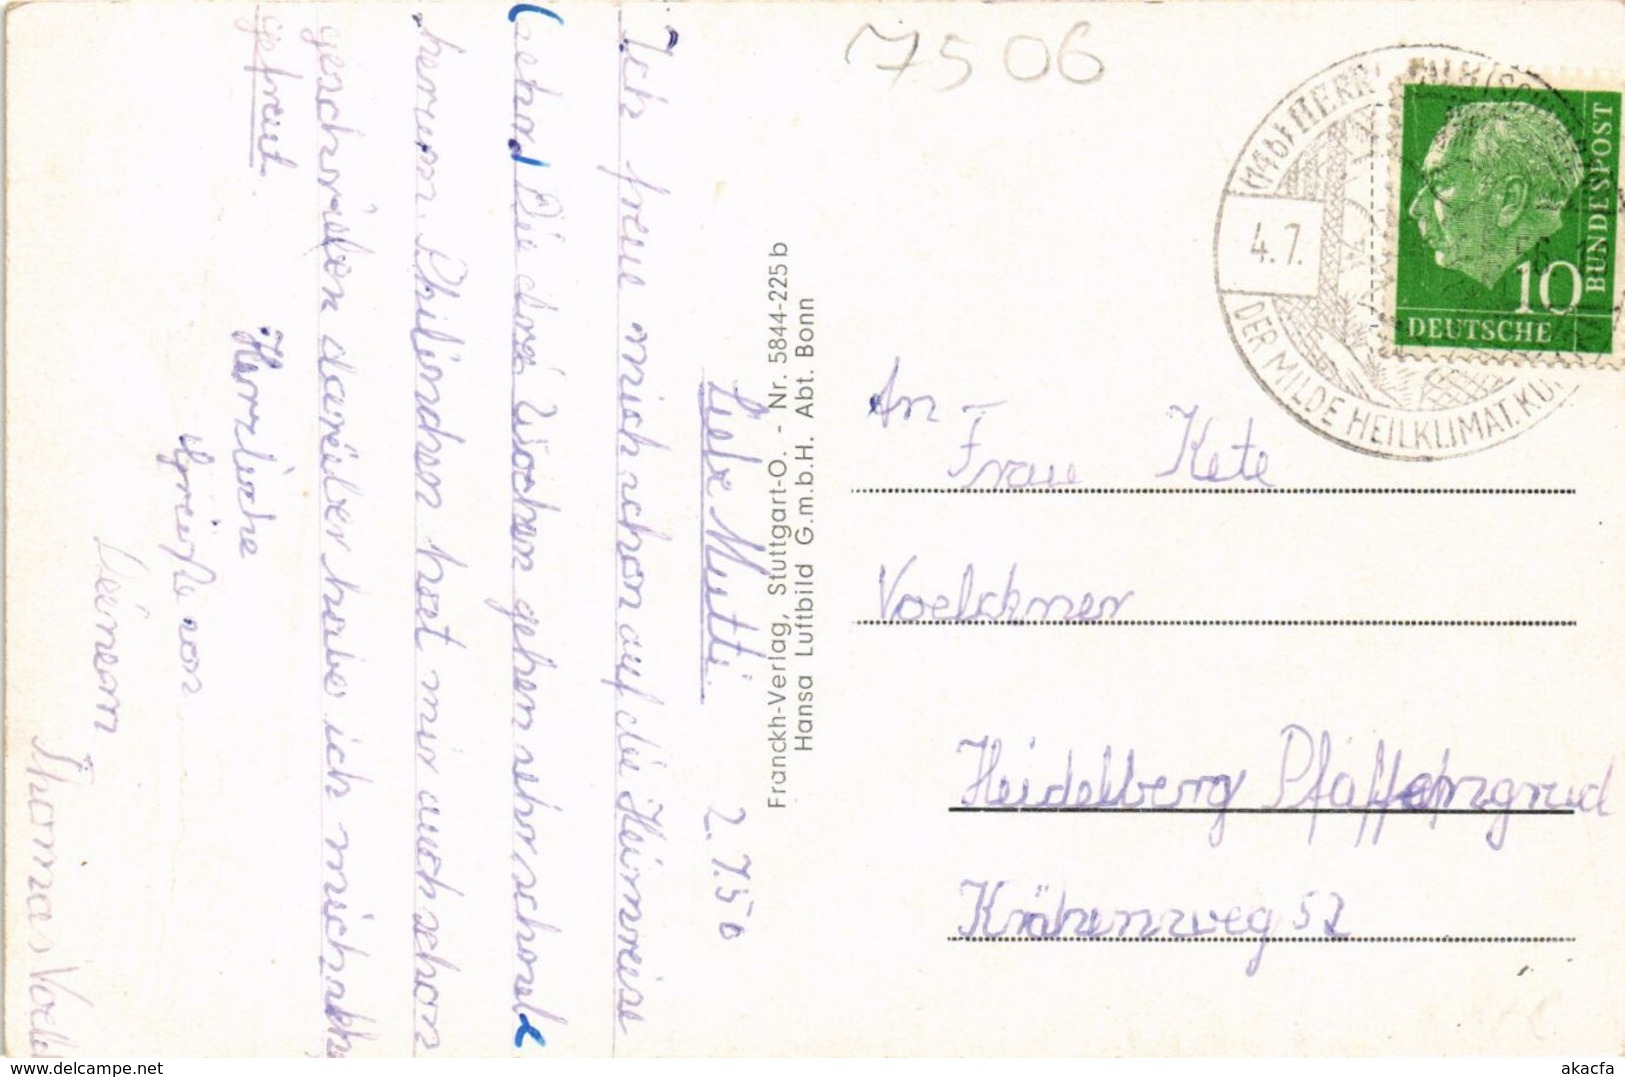 7506
(14b) HERR ALB (SCHWARZW
4.7.
56
DER MILDE HEILKLIMAT. KU
BUNDESPOST
10
DEUTSCHE
2.7.56
Liebe Mutti.
Ich freue mich schon auf die Heimreise
Die drei Wochen gehen sehr schnell
herum. Philindser hat mir auch schon
geschrieben darüber habe ich mich sehr
gefreut.
Herzliche
Grüße von
Deinem
Thomas Voel
Franckh-Verlag, Stuttgart-O. - Nr. 5844-225 b
Hansa Luftbild G.m.b.H. Abt. Bonn
An
Frau Kete
Voelckner
Heidelberg Pfaffengrud
Krähenweg 52
delcampe.net
akacfa